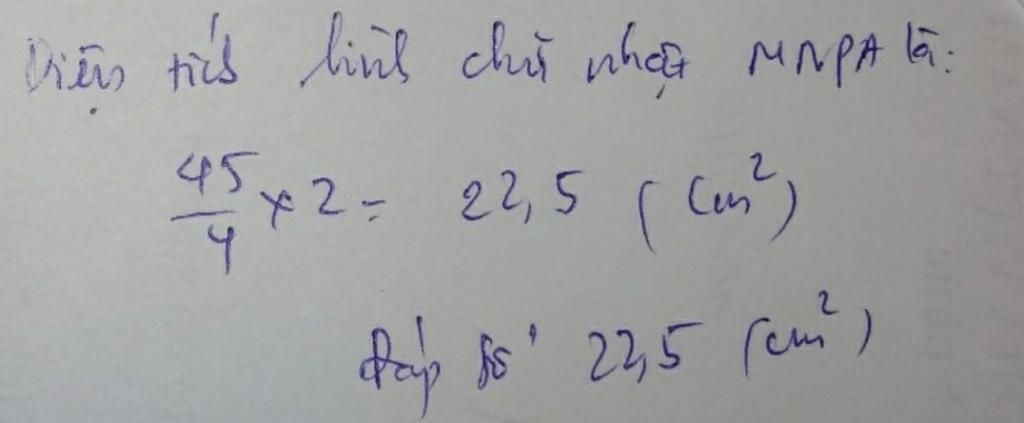 Diện tích hình chữ nhật MNPA là:
45/4 × 2 = 22,5 (cm²)
Đáp số 22,5 (cm²)